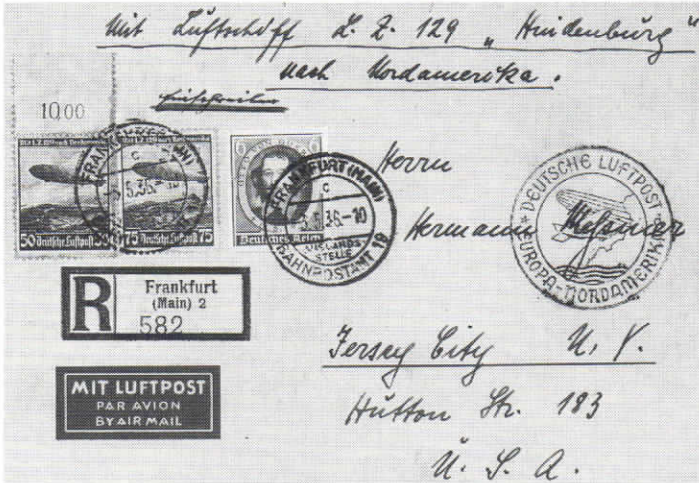 Mit Luftschiff L. Z. 129 „Hindenburg“
nach Nordamerika.
Einschreiben
10,00
50 Deutsche Luftpost 50
75 Deutsche Luftpost 75
Deutsches Reich
FRANKFURT (MAIN)
c
5.36.-10
AUSLANDS
STELLE
BAHNPOSTAMT 19
Herrn
Hermann
DEUTSCHE LUFTPOST
EUROPA-NORDAMERIKA
R
Frankfurt
(Main) 2
582
MIT LUFTPOST
PAR AVION
BY AIR MAIL
Jersey City N. Y.
Hutton Str. 183
U. S. A.